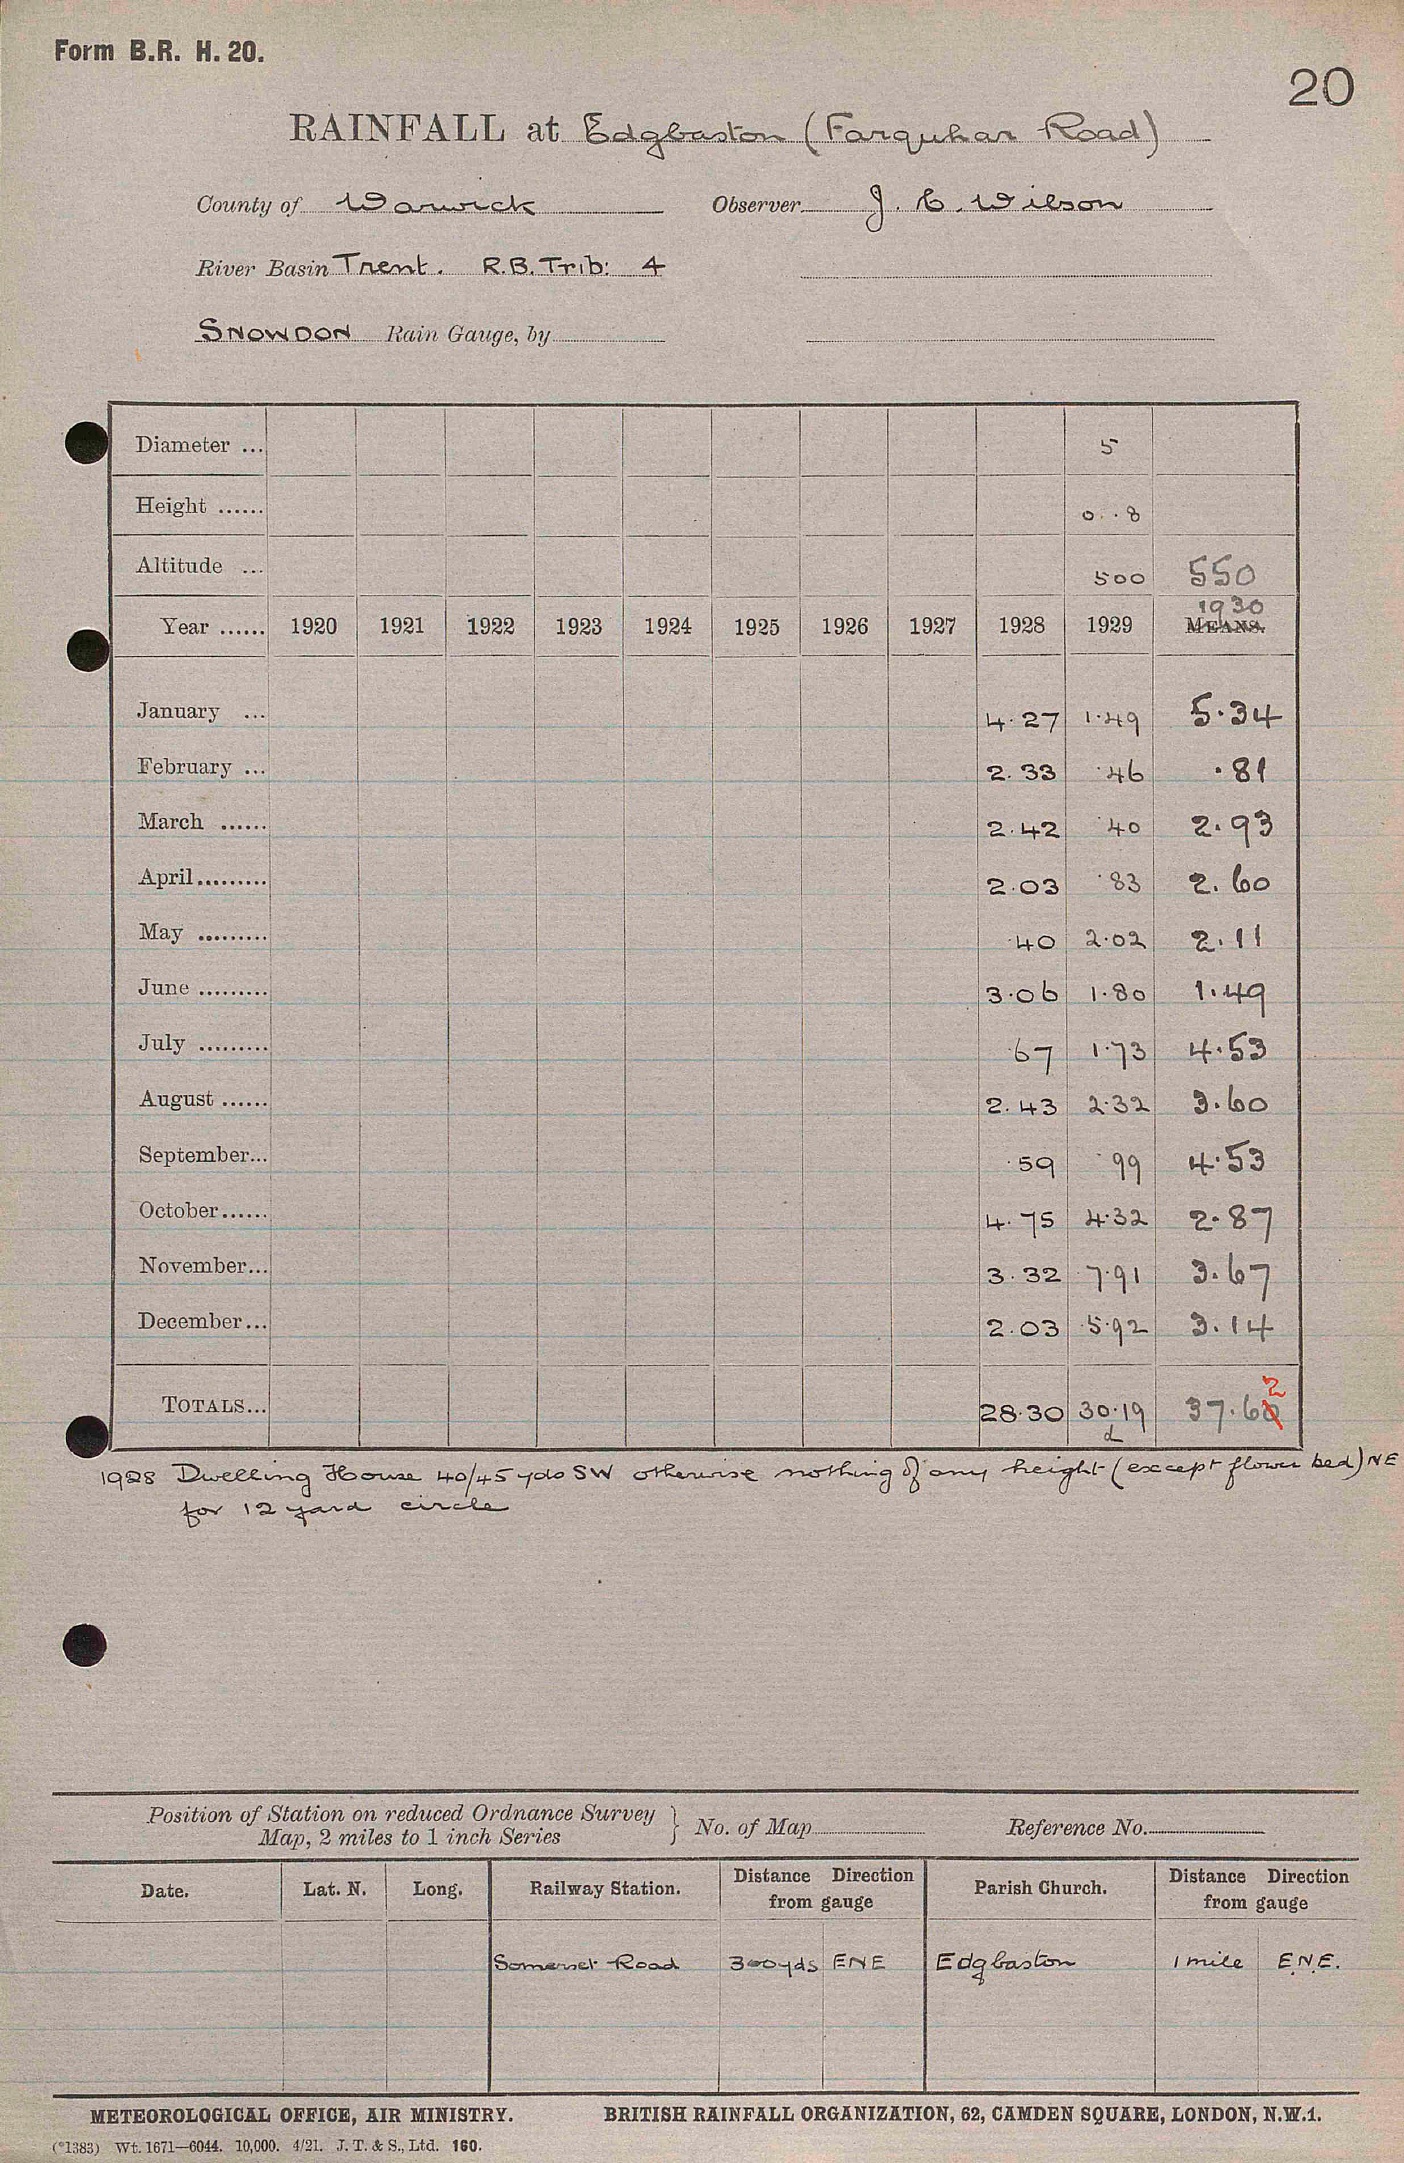 Form B.R. H. 20.
20
RAINFALL at Edgbaston (Farquhar Road)
County of Warwick Observer J. C. Wilson
River Basin Trent. R.B. Trib: 4
SNOWDON Rain Gauge, by
Diameter ... 5
Height ...... 0..8
Altitude ... 500 550
Year ...... 1920 1921 1922 1923 1924 1925 1926 1927 1928 1929 1930 MEANS.
January ... 4.27 1.49 5.34
February ... 2.33 .46 .81
March ...... 2.42 .40 2.93
April......... 2.03 .83 2.60
May ......... .40 2.02 2.11
June ......... 3.06 1.80 1.49
July ......... .67 1.73 4.53
August ...... 2.43 2.32 3.60
September... .59 .99 4.53
October...... 4.75 4.32 2.87
November... 3.32 7.91 3.67
December... 2.03 5.92 3.14
TOTALS... 28.30 30.19 37.60 2
d
1928 Dwelling House 40/45 yds SW otherwise nothing of any height (except flower bed) NE
for 12 yard circle
Position of Station on reduced Ordnance Survey
Map, 2 miles to 1 inch Series } No. of Map Reference No.
Date. Lat. N. Long. Railway Station. Distance Direction from gauge Parish Church. Distance Direction from gauge
Somerset Road 300yds ENE Edgbaston 1 mile E.N.E.
METEOROLOGICAL OFFICE, AIR MINISTRY. BRITISH RAINFALL ORGANIZATION, 62, CAMDEN SQUARE, LONDON, N.W.1.
(*1383) Wt. 1671—6044. 10,000. 4/21. J. T. & S., Ltd. 160.